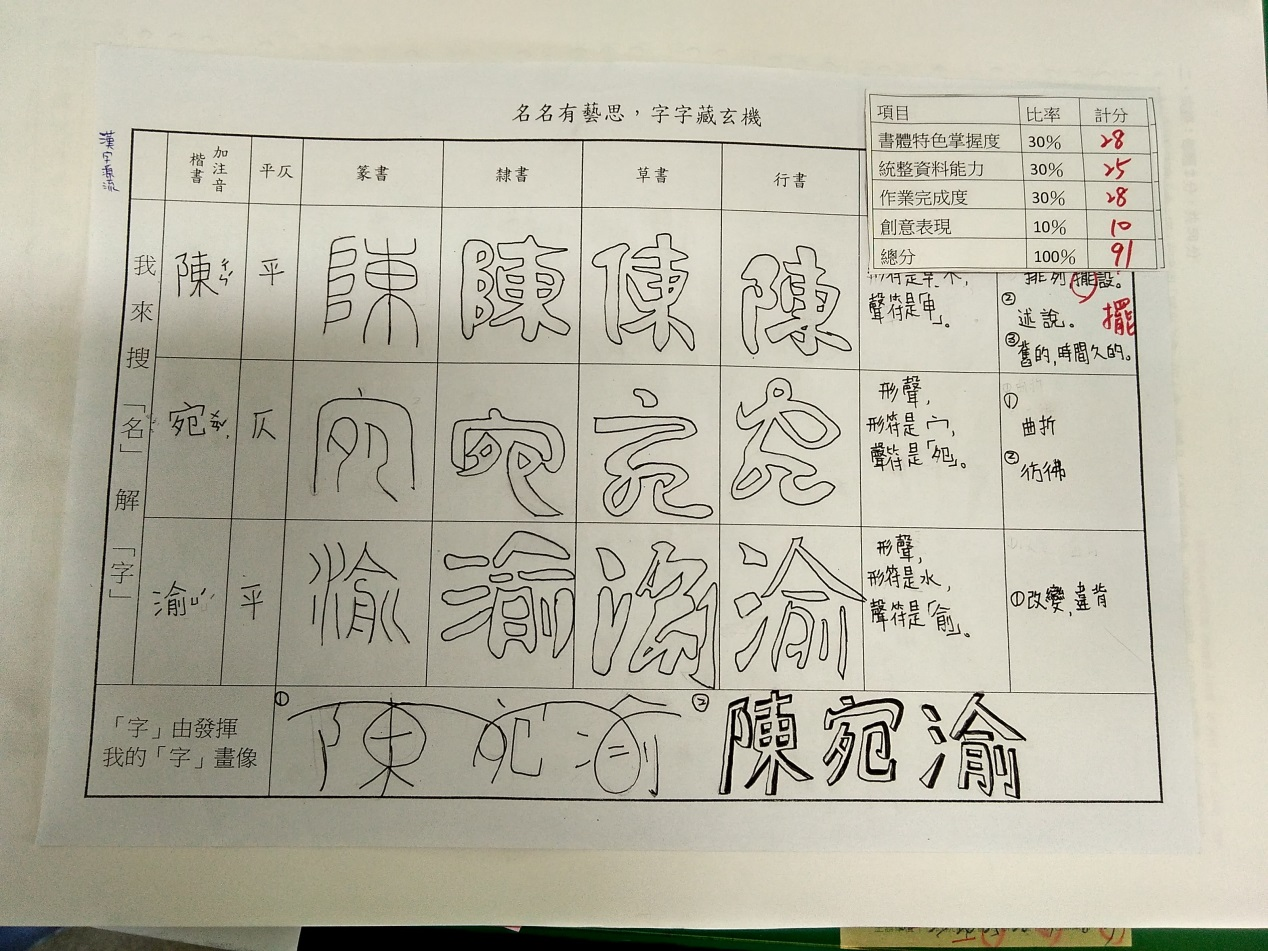 名名有藝思，字字藏玄機
漢字源流
項目 比率 計分
書體特色掌握度 30% 28
統整資料能力 30% 25
作業完成度 30% 28
創意表現 10% 10
總分 100% 91
楷書 加注音 平仄 篆書 隸書 草書 行書
我來搜「名」解「字」
陳 ㄔㄣˊ 平 陳 陳 陳 陳
聲符是「申」。
排列擺設。
擺
② 述說。
③ 舊的,時間久的。
宛 ㄨㄢˇ 仄 宛 宛 宛 宛
形聲,
形符是宀,
聲符是「夗」。
① 曲折
② 彷彿
渝 ㄩˊ 平 渝 渝 渝 渝
形聲,
形符是水,
聲符是「俞」。
①改變,違背
「字」由發揮
我的「字」畫像
① 陳宛渝 ② 陳宛渝